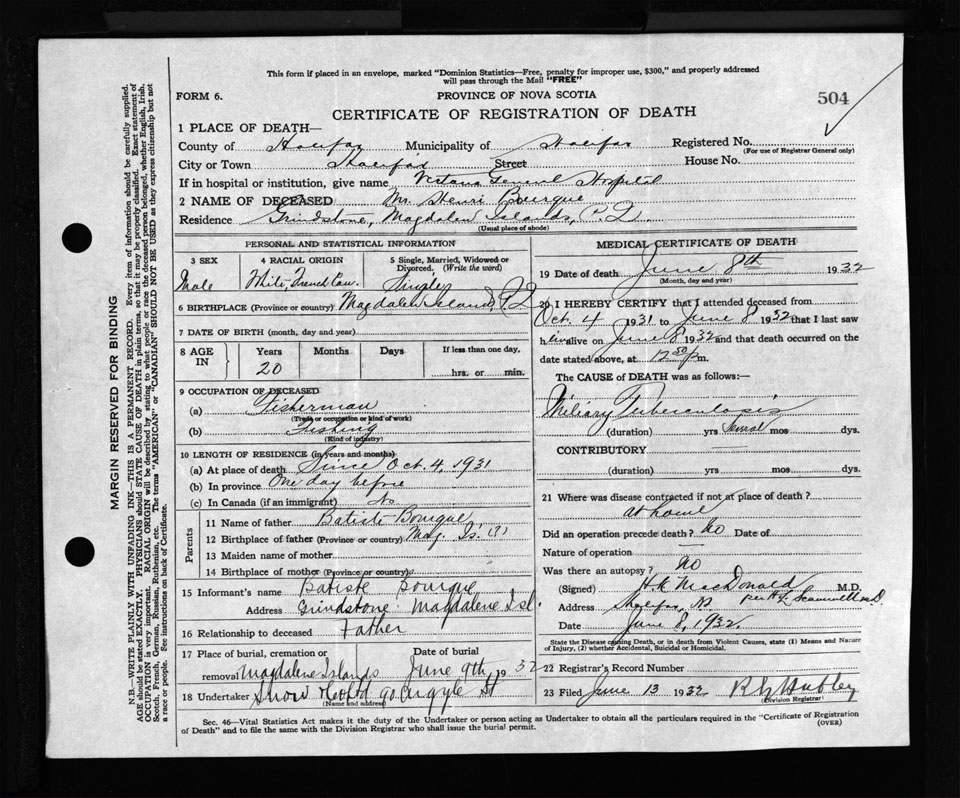 This form if placed in an envelope, marked "Dominion Statistics—Free, penalty for improper use, $300," and properly addressed
will pass through the Mail "FREE"
FORM 6.
PROVINCE OF NOVA SCOTIA
504
CERTIFICATE OF REGISTRATION OF DEATH
1 PLACE OF DEATH—
County of Halifax Municipality of Halifax Registered No.
(For use of Registrar General only)
City or Town Halifax Street House No.
If in hospital or institution, give name Victoria General Hospital
2 NAME OF DECEASED Mr. Henri Bourque
Residence Grindstone, Magdalen Islands, P.Q.
(Usual place of abode)
PERSONAL AND STATISTICAL INFORMATION
3 SEX
Male
4 RACIAL ORIGIN
White French Can.
5 Single, Married, Widowed or
Divorced. (Write the word)
Single
6 BIRTHPLACE (Province or country) Magdalen Islands, P.Q
7 DATE OF BIRTH (month, day and year)
8 AGE IN
Years Months Days If less than one day,
20
hrs. or min.
9 OCCUPATION OF DECEASED
(a) Fisherman
(Trade or occupation or kind of work)
(b) Fishing
(Kind of industry)
10 LENGTH OF RESIDENCE (in years and months)
(a) At place of death Since Oct. 4, 1931
(b) In province One day before
(c) In Canada (if an immigrant)
Parents
11 Name of father Batiste Bourque
12 Birthplace of father (Province or country) Mag. Is. (?)
13 Maiden name of mother
14 Birthplace of mother (Province or country)
15 Informant's name Batiste Bourque
Address Grindstone Magdalene Isl.
16 Relationship to deceased Father
17 Place of burial, cremation or Date of burial
removal Magdalene Islands June 9th 1932
18 Undertaker Snow 90 Argyle St
(Name and address)
MEDICAL CERTIFICATE OF DEATH
19 Date of death June 8th 1932
(Month, day and year)
20 I HEREBY CERTIFY that I attended deceased from
Oct. 4 1931 to June 8 1932 that I last saw
him alive on June 8 1932 and that death occurred on the
date stated above, at 12.50 p m.
The CAUSE of DEATH was as follows:—
Miliary Tuberculosis
(duration) yrs Several mos dys.
CONTRIBUTORY
(duration) yrs mos dys.
21 Where was disease contracted if not at place of death?
at home
Did an operation precede death? No Date of
Nature of operation —
Was there an autopsy? No
(Signed) H.K. MacDonald M.D.
Address Halifax, NS per H.L. Scammell M.D.
Date June 8, 1932.
State the Disease causing Death, or in death from Violent Causes, state (1) Means and Nature
of Injury, (2) whether Accidental, Suicidal or Homicidal.
22 Registrar's Record Number
23 Filed June 13 1932 Hubley
(Division Registrar)
Sec. 46—Vital Statistics Act makes it the duty of the Undertaker or person acting as Undertaker to obtain all the particulars required in the "Certificate of Registration
of Death" and to file the same with the Division Registrar who shall issue the burial permit.
(OVER)
MARGIN RESERVED FOR BINDING
N.B.—WRITE PLAINLY WITH UNFADING INK—THIS IS A PERMANENT RECORD. Every item of information should be carefully supplied.
AGE should be stated EXACTLY. PHYSICIANS should STATE CAUSE OF DEATH in plain terms, so that it may be properly classified. Exact statement of
OCCUPATION is very important. RACIAL ORIGIN will be described by stating to what people or race the deceased person belonged, whether English, Irish,
Scotch, French, German, Russian, Ruthenian, etc. The terms "AMERICAN" or "CANADIAN" SHOULD NOT BE USED as they express citizenship but not
a race or people. See instructions on back of Certificate.